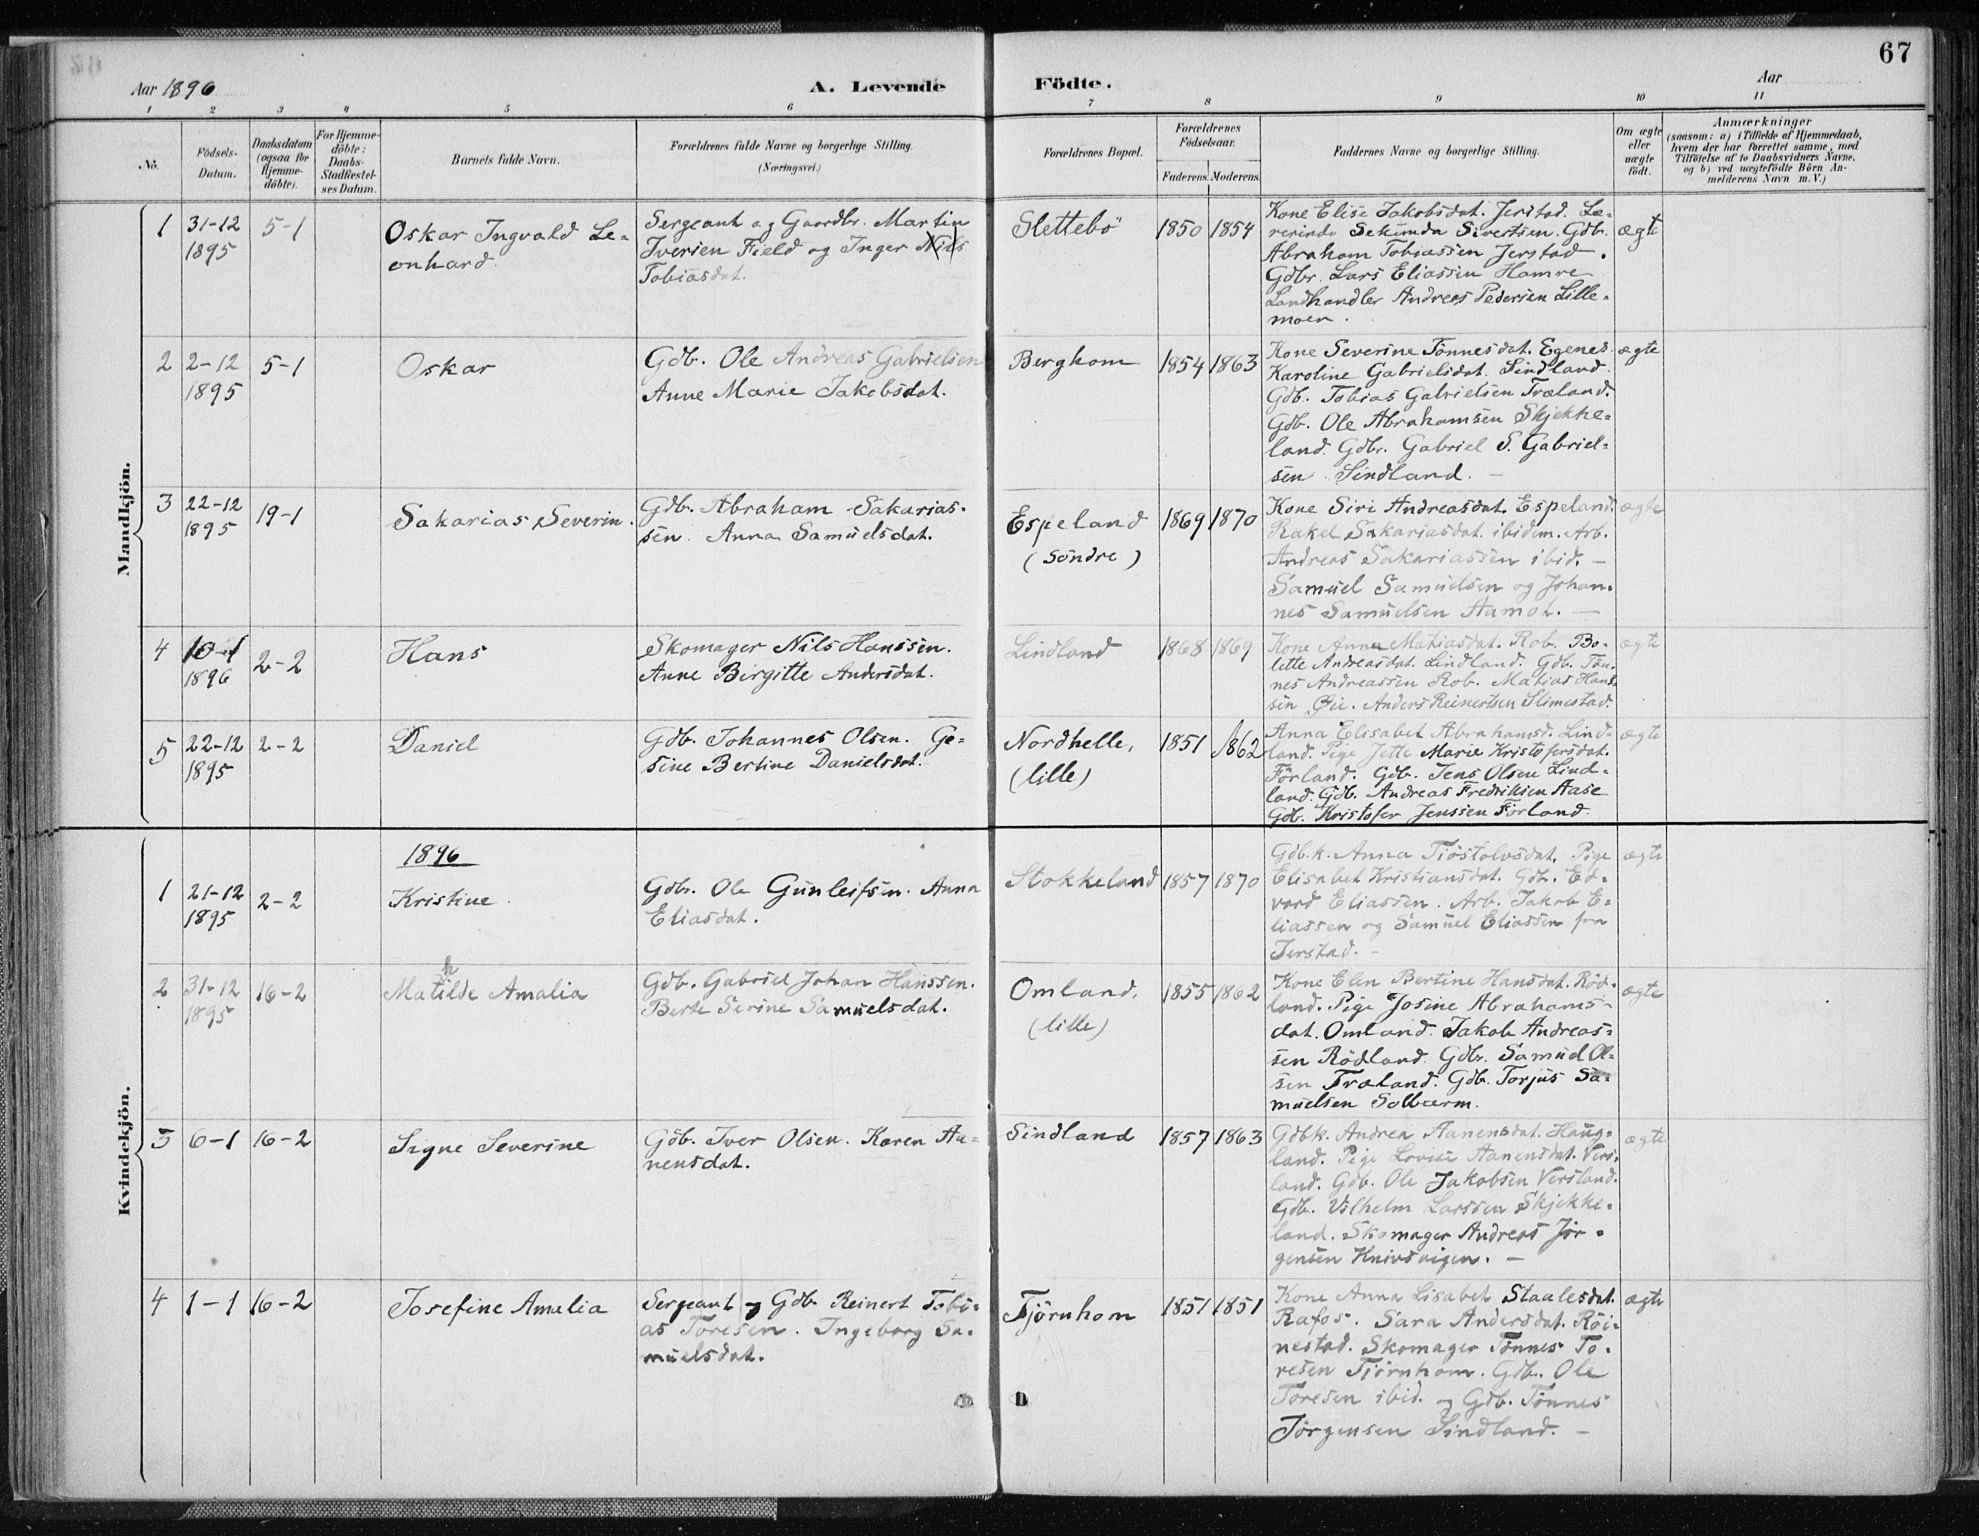 67
Aar 1896
A. Levende Födte.
Aar
1 2 3 4 5 6 7 8 9 10 11
No.
Födsels-Datum.
Daabsdatum (ogsaa for Hjemme-döbte).
For Hjemme-döbte: Daabs-Stadfæstel-ses Datum.
Barnets fulde Navn.
Forældrenes fulde Navne og borgerlige Stilling.
(Næringsvei.)
Forældrenes Bopæl.
Forældrenes Födselsaar.
Faderens. Moderens.
Faddernes Navne og borgerlige Stilling.
Om ægte eller uægte födt.
Anmærkninger
(saasom: a) i Tilfælde af Hjemmedaab,
hvem der har forrettet samme, med
Tilföielse af to Daabsvidners Navne,
og b) ved uægtefödte Börn An-
melderens Navn m. V.)
Mandkjön.
1 31-12 1895 5-1
Oskar Ingvald Le-
onhard
Sergeant og Gaardbr. Martin
Iversen Field og Inger Nils
Tobiasdat.
Slettebö
1850 1854
Kone Elise Jakobsdat. Jerstad. Læ-
rerinde Sekunda Sivertsen. Gdb.
Abraham Tobiassen Jerstad.
Gdbr. Lars Eliassen Hamre
Landhandler Andreas Pedersen Lille-
moen.
ægte
2 2-12 1895 5-1
Oskar
Gdb. Ole Andreas Gabrielsen
Anne Marie Jakobsdat.
Berghom
1854 1863
Kone Severine Tönnesdat. Egenes.
Karoline Gabrielsdat. Sindland.
Gdb. Tobias Gabrielsen Træland.
Gdb. Ole Abrahamsen Skjekke-
land. Gdbr. Gabriel S. Gabriel-
sen Sindland. -
ægte
3 22-12 1895 19-1
Sakarias Severin.
Gdb. Abraham Sakarias-
sen. Anna Samuelsdat.
Espeland
(Söndre)
1869 1870
Kone Siri Andreasdat. Espeland.
Rakel Sakariasdat. ibidem. Arb.
Andreas Sakariassen ibid. -
Samuel Samuelsen og Johan-
nes Samuelsen Hamot. -
ægte
4 10-1 1896 2-2
Hans
Skomager Nils Hanssen.
Anne Birgitte Andersdat.
Lindland
1868 1869
Kone Anna Matiasdat. Rob. Bo-
lette Andreasdat. Lindland. Gdb. Tön-
nes Andreassen Rob. Matias Hans-
sen Øie. Anders Reinertsen Slimestad.
ægte
5 22-12 1895 2-2
Daniel
Gdb. Johannes Olsen. Ge-
sine Bertine Danielsdat.
Nordhelle,
(lille)
1851 1862
Anna Elisabet Abrahamsd. Lind-
land. Pige Jette Marie Kristofersdat.
Förland. Gdb. Jens Olsen Lind-
land. Gdb. Andreas Fredriksen Aase
Gdb. Kristofer Jenssen Förland.
ægte
Kvindekjön.
1896
1 21-12 1895 2-2
Kristine.
Gdbr. Ole Gunleifsen. Anna
Eliasdat.
Stokkeland
1857 1870
Gdb.k. Anna Tjöstolvsdat. Pige
Elisabet Kristiansdat. Gdb. Ed-
vard Eliassen. Arb. Jakob E-
liassen og Samuel Eliassen fra
Jerstad. -
ægte
2 31-12 1895 16-2
h
Matilde Amalia
Gdb. Gabriel Johan Hanssen.
Berte Serine Samuelsdat.
Omland,
(lille)
1855 1862
Kone Elen Bertine Hansdat. Röd-
land. Pige Josine Abrahams-
dat. Omland. Jakob Andreas-
sen Rödland. Gdbr. Samuel Ol-
sen Træland. Gdb. Torjus Sa-
muelsen Solbærm.
ægte
3 6-1 16-2
Signe Severine
Gdb. Iver Olsen. Karen Aa-
nensdat.
Sindland
1857 1863
Gdbk. Andrea Aanensdat. Haug-
land. Pige Lovise Aanensdat. Vers-
land. Gdb. Ole Jakobsen Versland.
Gdb. Vilhelm Larssen Skjekke-
land. Skomager Andreas Jör-
gensen Knivsvigen. -
ægte
4 1-1 16-2
Josefine Amalia
Sergeant og Gdb. Reinert Tobi-
as Toresen. Ingeborg Sa-
muelsdat.
Fjörnhom
1851 1851
Kone Anna Lisabet Staalesdat.
Rafos. Sara Andersdat. Röi-
nestad. Skomager Tönnes To-
resen Fjörnhom. Gdb. Ole
Toresen ibid. og Gdb. Tönnes
Jörgensen Sindland. -
ægte